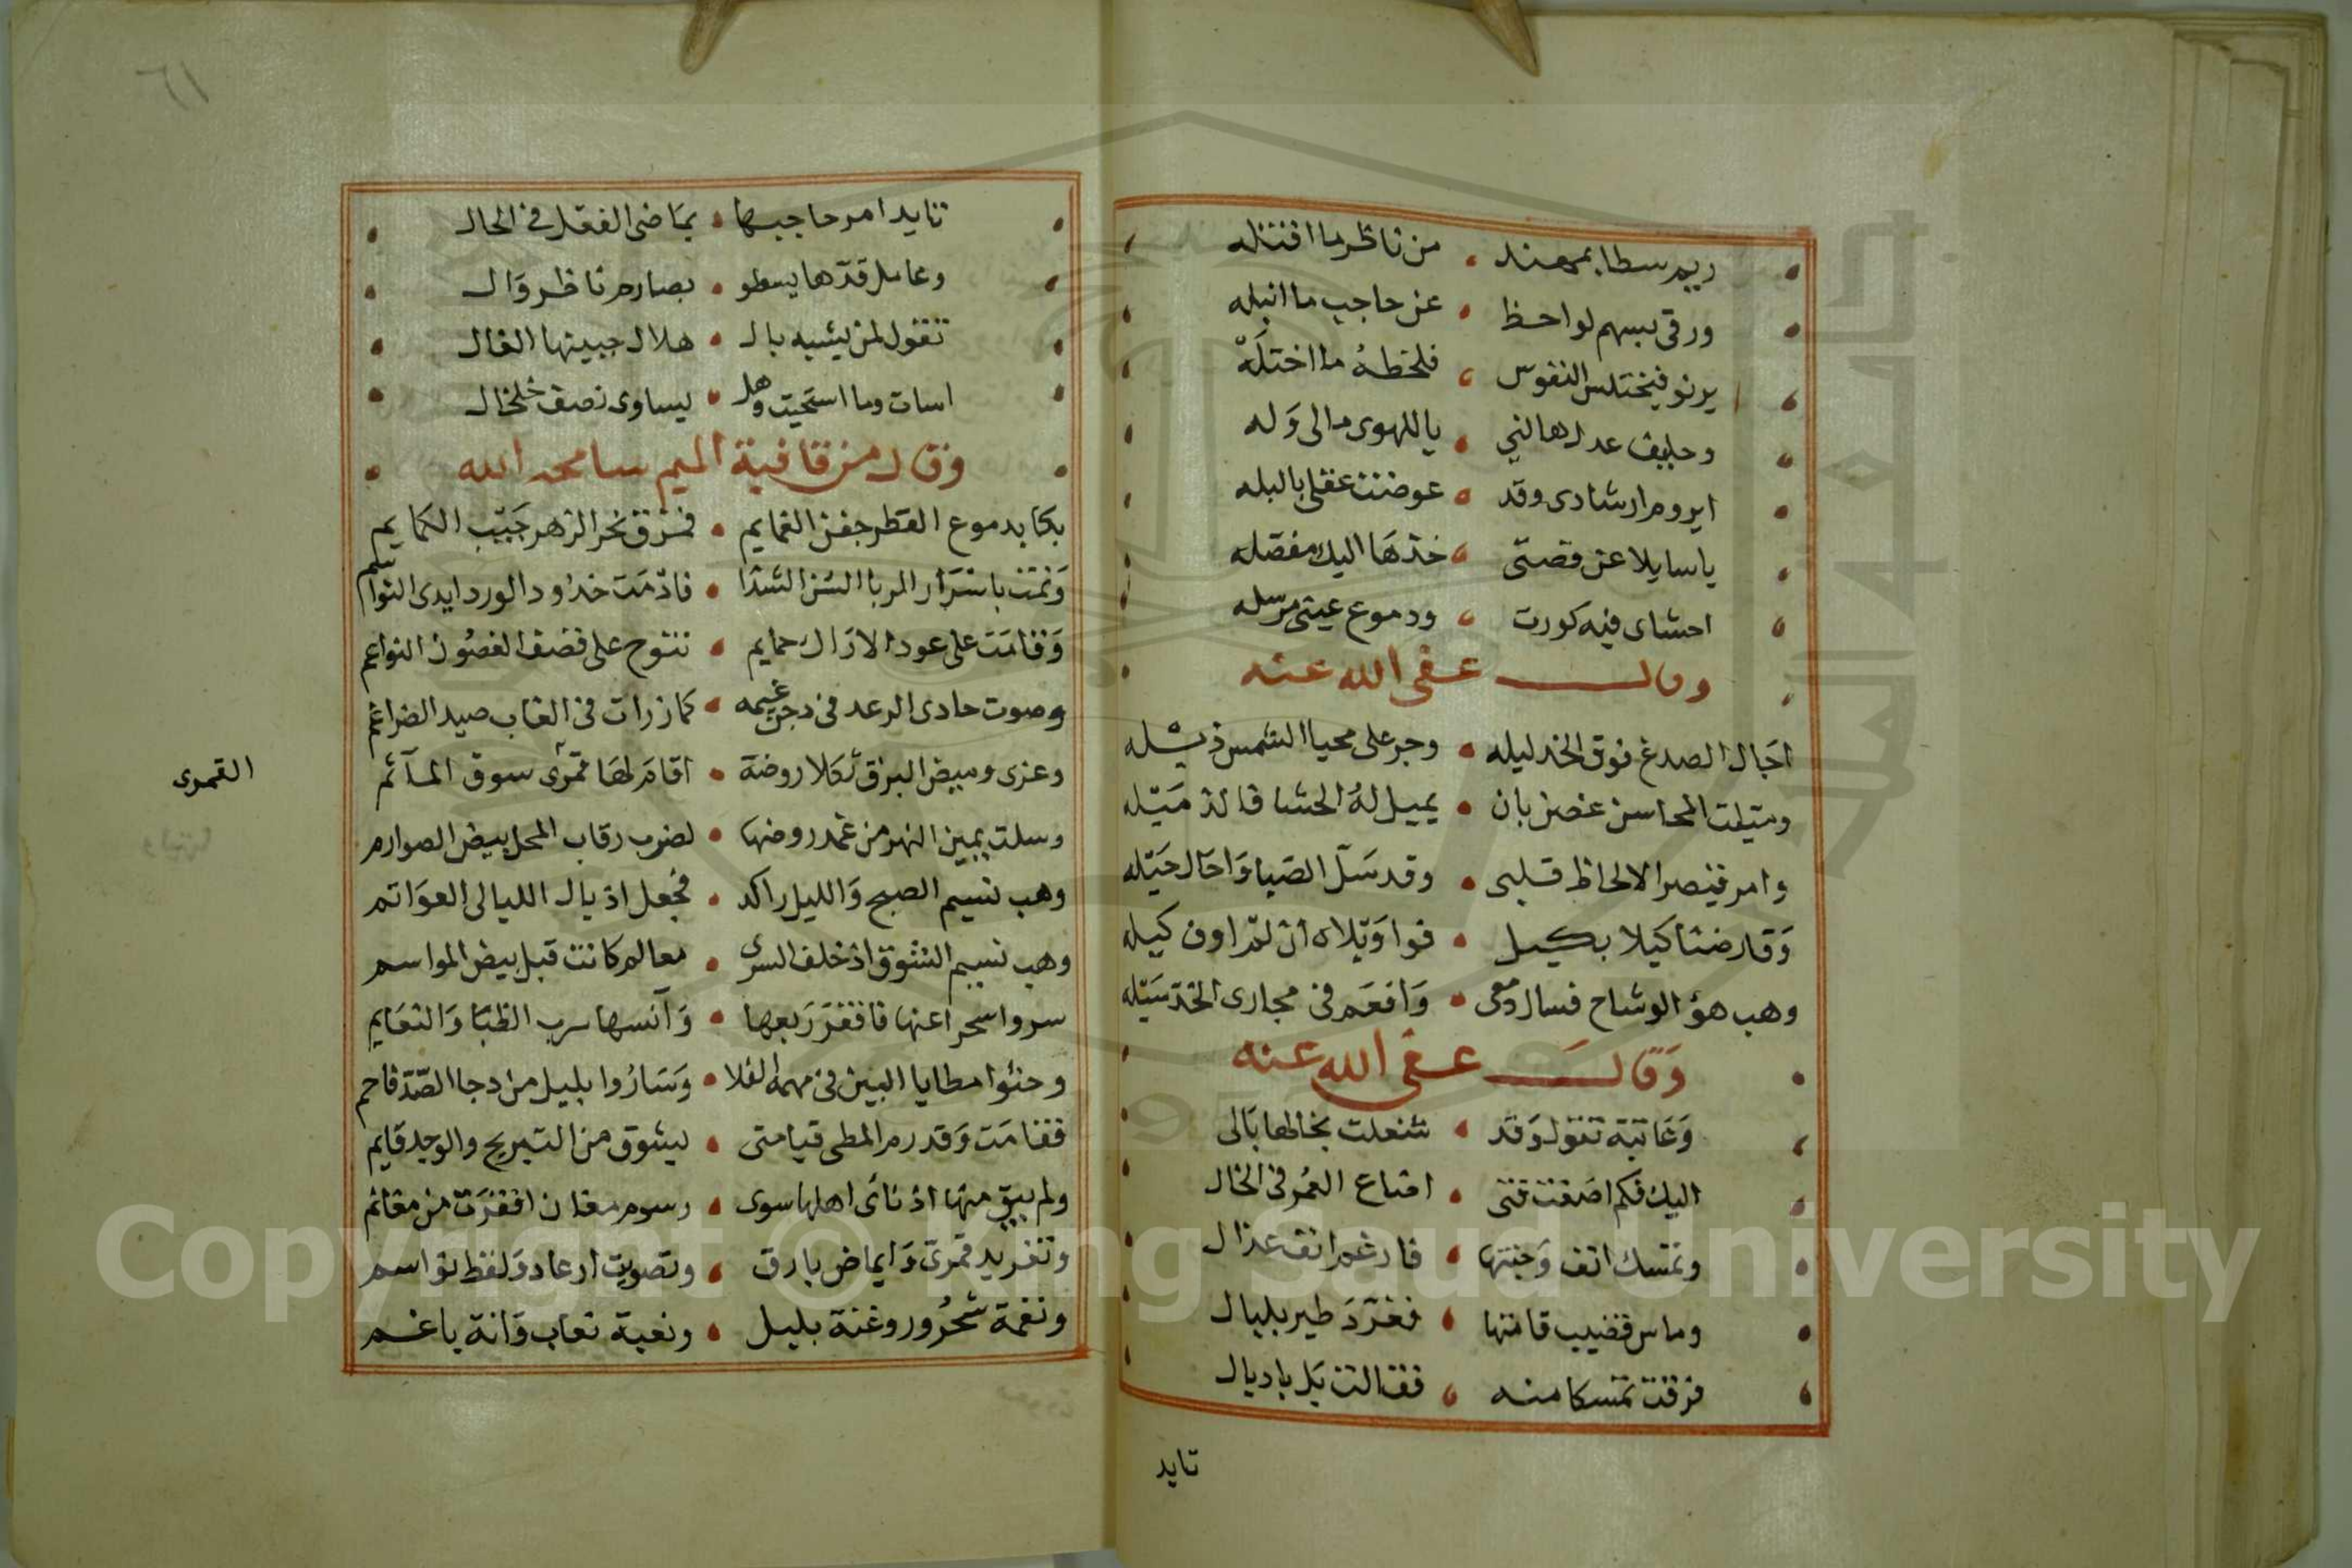 ريم سطا بمهند • من ناظر ما اقتله
ورقى بسهم لواحظ • عن حاجب ما انبله
يرنو فيختلس النفوس • فلحظه ما اختله
وحليف عدل هالني • يا للهوى مالى وله
ايروم ارشادى وقد • عوضت عقلي بالبله
يا سايلا عن قصتى • خذها اليك مفصله
احشاى فيه كورت • ودموع عينى مرسله
وقال عفى الله عنه
اجال الصدغ فوق الخد ليله • وجر على محيا الشمس ذيله
المحاسن غصن بان • يميل له الحشا
وامر فيصر الالحاظ قلبى • وقد سل الصبا واحال حيله
وقارضنا كيلا بكيل • فوا ويلاه ان لم اوف كيله
وهب هو الوشاح فسال دمعى • وافعم فى مجارى الخد سيله
وقال عفى الله عنه
وغانية تقول وقد • شغلت بخالها بالى
اليك فكم اضعت فتى • اضاع العمر فى الخال
وتمسك انف وجنتها • فارغم انف عذال
وماس قضيب قامتها • فغرد طير بلبال
فرقت تمسكا منه • فقالت بل باديال
تايد
٦١
تايد امر حاجبها • بماضى الفعل فى الحال
وعامل قدها يسطو • بصارم ناظر وال
تقول لمن يشبه بال • هلال جبينها الغال
اسات وما استحيت وهل • يساوى نصف خلخال
وقال من قافية الميم سامحه الله
بكا بدموع القطر جفن الغمايم • فمزق نحر الزهر جيب الكمايم
ونمت باسرار الربا السن الشذا • فادمت خدود الورد ايدى النواسم
وقامت على عود الاراك حمايم • تنوح على قضف الغصون النواعم
وصوت حادى الرعد فى دجن غيمه • كما زرات فى الغاب صيد الضراغم
وعزى وميض البرق ثكلا روضة • اقام لها قمرى سوق المآتم
القمرى
وسلت يمين النهر من غمد روضها • لضرب رقاب المحل بيض الصوارم
وهب نسيم الصبح والليل راكد • فجعل اذيال الليالى العواتم
وهب نسيم الشوق اذ خلف السرى • معالم كانت قبل بيض المواسم
سروا سحرا عنها فاقفر ربعها • وآنسها سرب الظبا والنعايم
وحثوا مطايا البين فى مهمه الفلا • وساروا بليل من دجا الصد فاحم
فقامت وقد رم المطى قيامتى • ليشوق من التبريح والوجد قايم
ولم يبق منها اذ ناى اهلها سوى • رسوم مغان اقفرت من مغانم
وتغريد قمرى وايماض بارق • وتصويت ارعاد ولفظ نواسم
ونغمة شحرور وغنة بلبل • ونعبة نعاب وانة باغم
Copyright © King Saud University